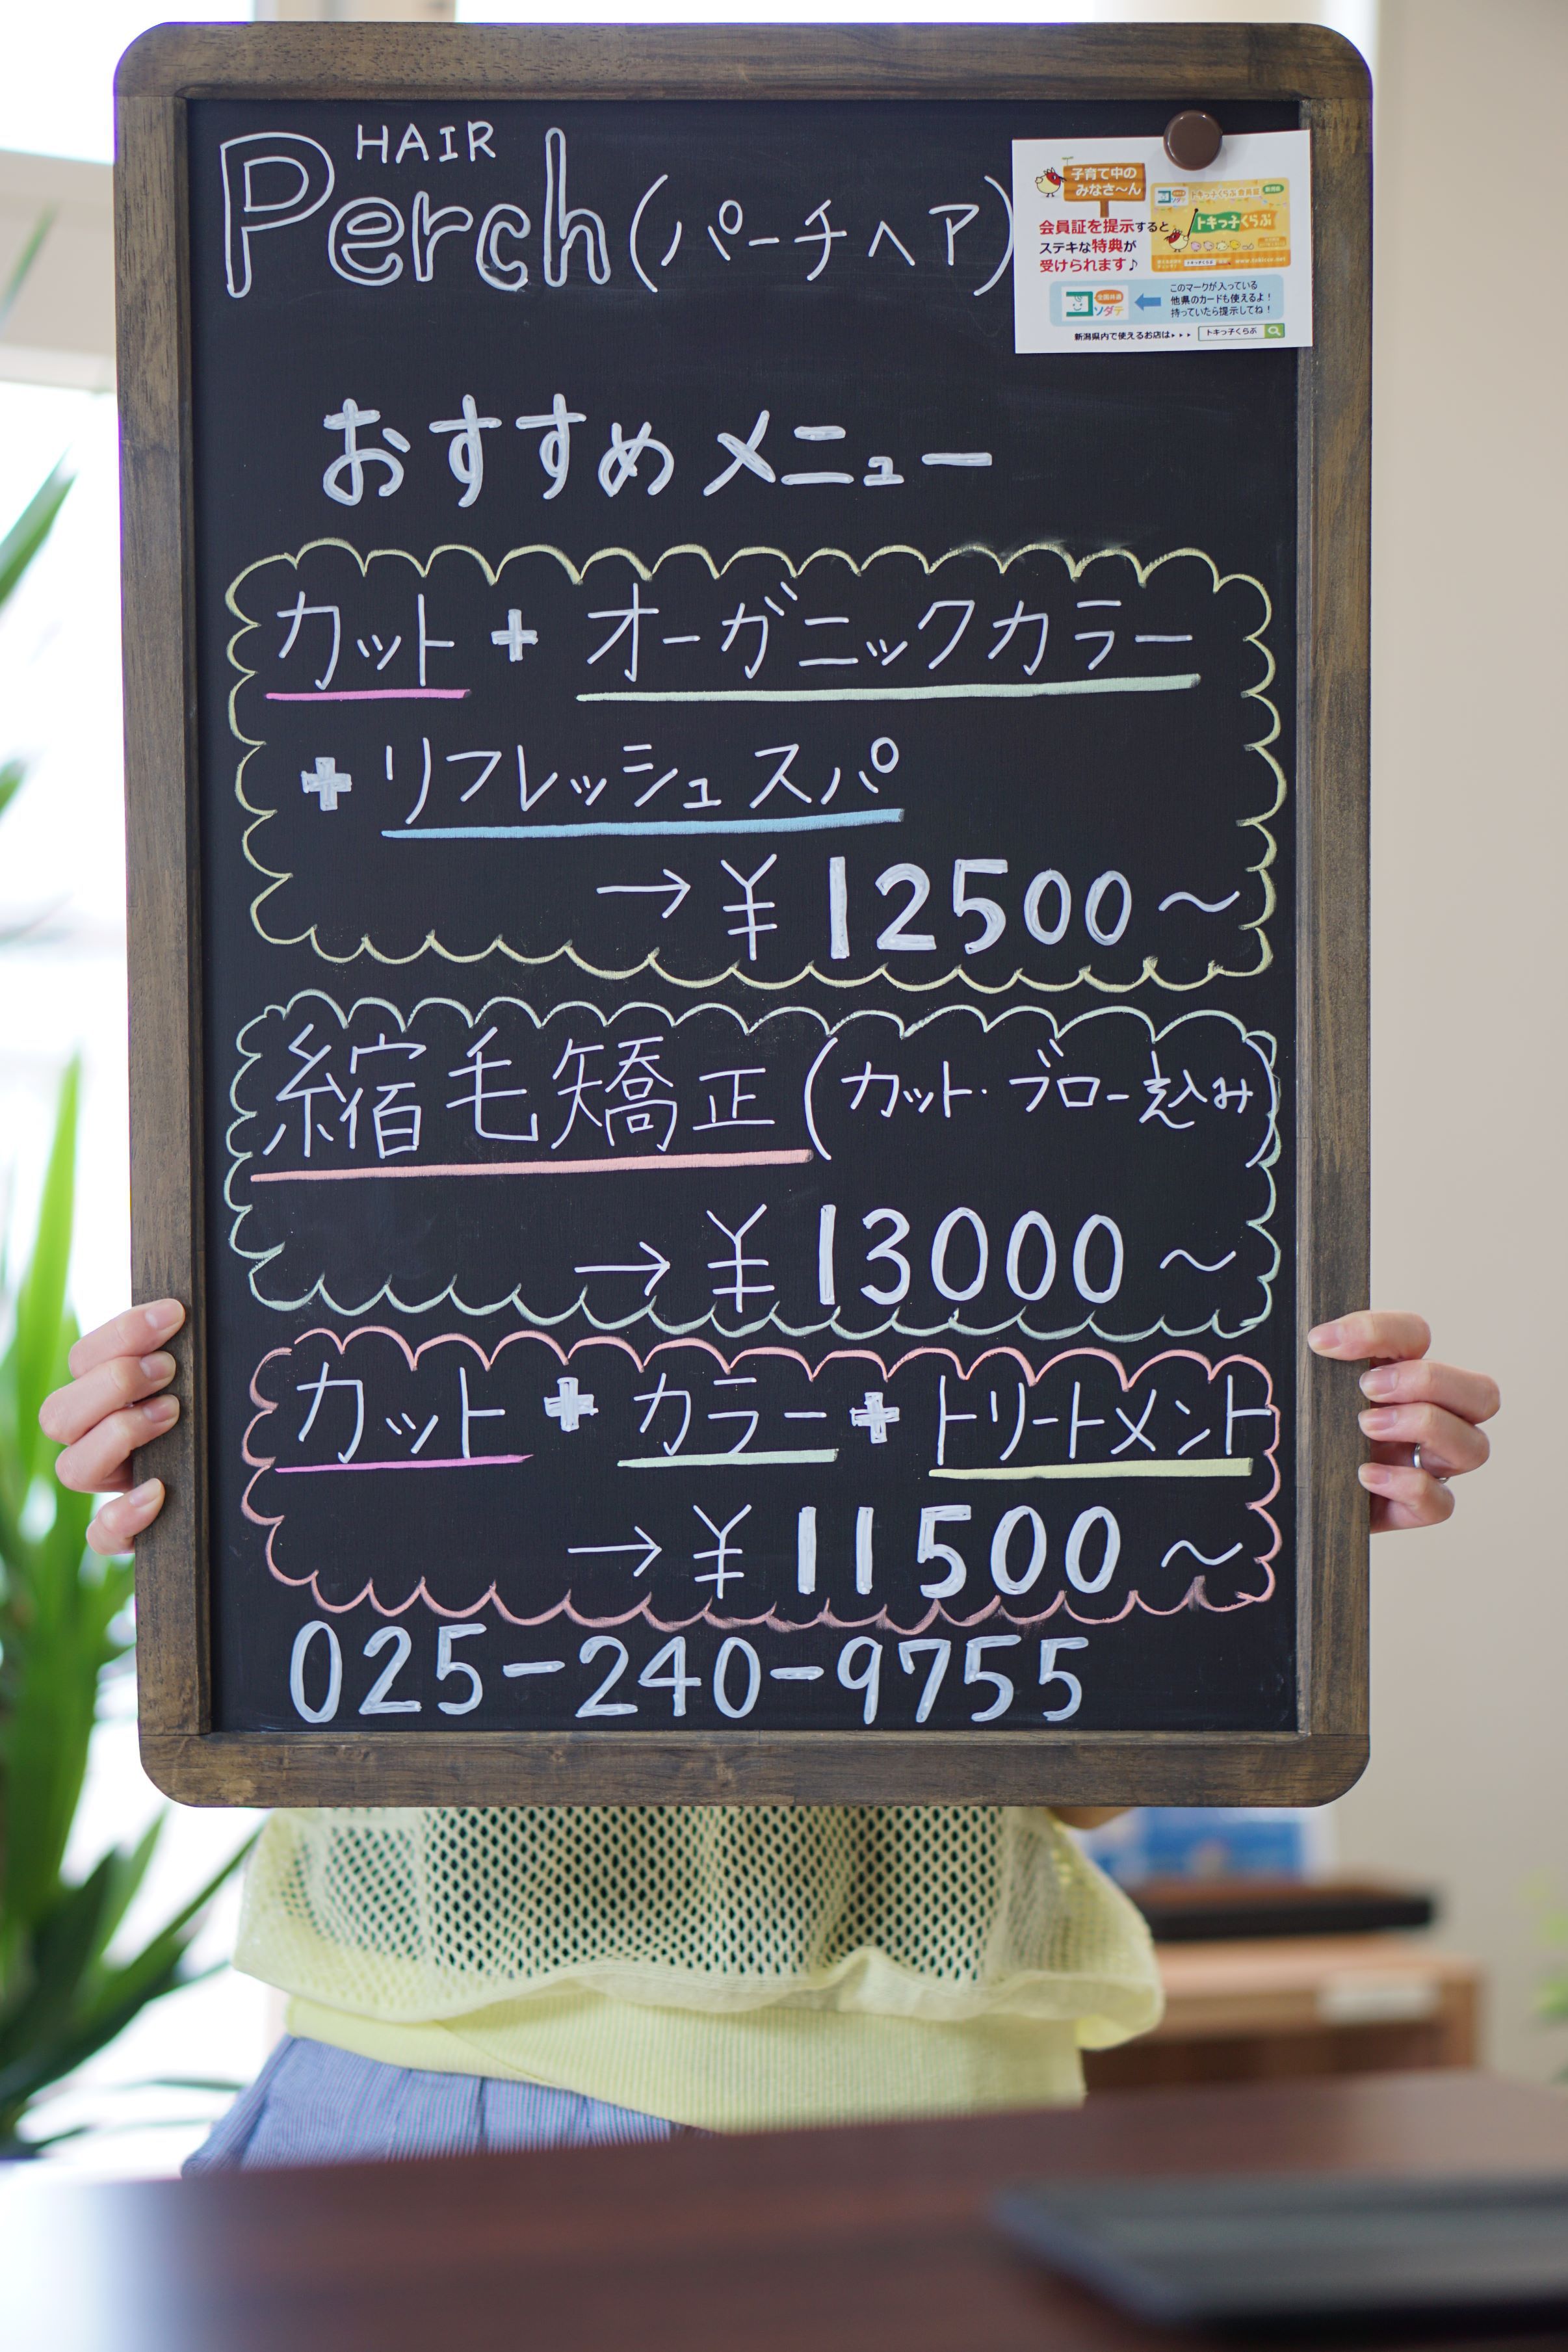 HAIR
Perch (パーチヘア)
子育て中の
みなさ〜ん
会員証を提示すると
ステキな特典が
受けられます♪
トキっ子くらぶ
コソダテ
このマークが入っている
他県のカードも使えるよ!
持っていたら提示してね!
新潟県内で使えるお店は▸▸▸ トキっ子くらぶ
おすすめメニュー
カット + オーガニックカラー
+ リフレッシュスパ
→ ¥12500〜
縮毛矯正 (カット・ブロー込み)
→ ¥13000〜
カット + カラー + トリートメント
→ ¥11500〜
025-240-9755